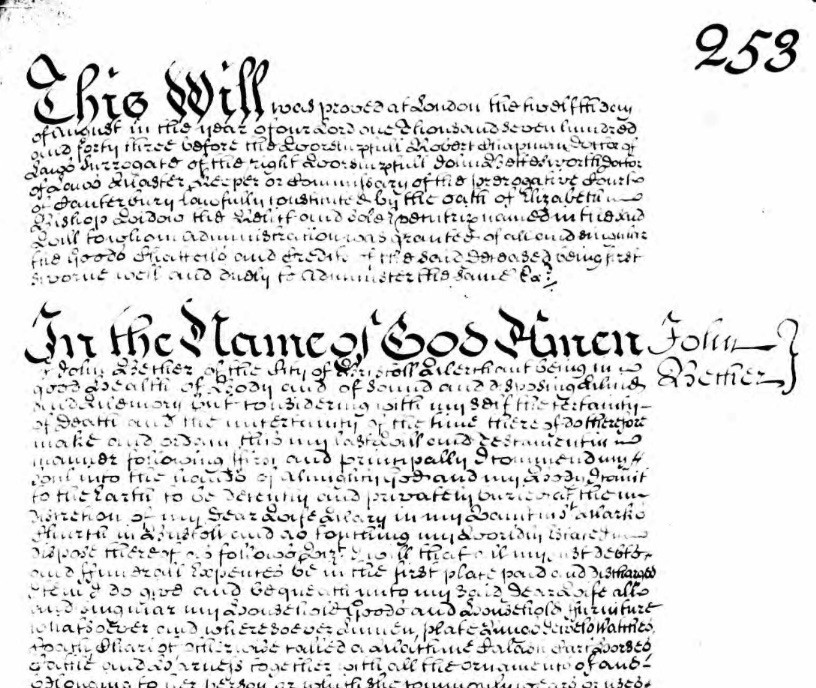 253
This Will was proved at London the twelfth day
of August in the year of our Lord one Thousand seven hundred
and forty three before the Worshipfull Robert Chapman Doctor of
Laws Surrogate of the right Worshipfull John Bettesworth doctor
of Laws Master Keeper or Commissary of the prerogative Court
of Canterbury lawfully constituted by the oath of Elizabeth
Bishop Widow the Relict and Sole named in the said
Will to whom administration was granted of all and singular
the Goods Chattells and Credits of the said Deceased being first
Sworne well and duely to administer the same Ex:
In the Name of God Amen John
I John Bether of the City of Bristoll Merchant being in Bether
good Health of Body and of sound and disposing Mind
and Memory but considering with my self the certainty
of Death and the uncertainty of the time thereof do therefore
make and ordain this my last Will and Testament in
manner following first and principally I commend my
soul into the hands of Almighty God and my Body I comit
to the Earth to be decently and privately buried at the
discretion of my Dear Wife Mary in my Vault in St Marks
Church in Bristoll and as touching my Worldly Estate I
dispose thereof as follows I will that all my just debts
and ffunerall Expences be in the first place paid and discharged
Item I do give and bequeath unto my said Dear Wife all
and singular my Household Goods and Household ffurniture
whatsoever and wheresoever Linnen, plate Rings Jewels Watches
Coach Chariot otherwise called a Horses
Cattle and Harness together with all the ornaments of and
belonging to her person or which she commonly wears or uses